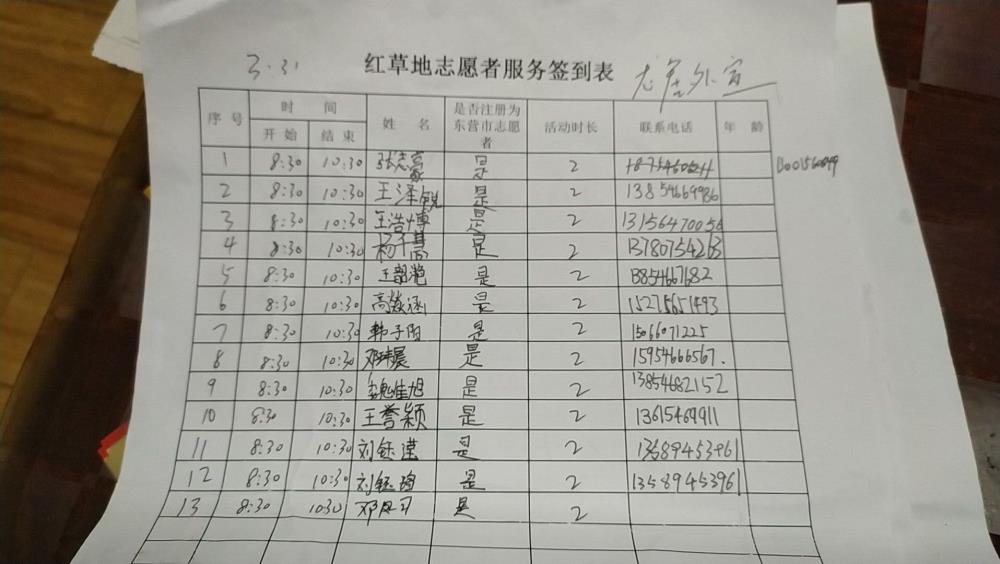 3.31 红草地志愿者服务签到表
序号 时间 姓名 是否注册为东营市志愿者 活动时长 联系电话 年龄
开始 结束
1 8:30 10:30 张志豪 是 2
2 8:30 10:30 王泽锐 是 2 13854669986
3 8:30 10:30 王浩博 是 2 13156470056
4 8:30 10:30 是 2 13780754263
5 8:30 10:30 王韶滟 是 2 13854667682
6 8:30 10:30 高 涵 是 2 15275651493
7 8:30 10:30 韩子阳 是 2 1506071225
8 8:30 10:30 邓 晨 是 2 15954666567.
9 8:30 10:30 魏佳旭 是 2 13854682152
10 8:30 10:30 王誉颖 是 2 13615469911
11 8:30 10:30 刘钰滢 是 2 13589453961
12 8:30 10:30 刘钰 是 2 13589453961
13 8:30 10:30 邓 是 2